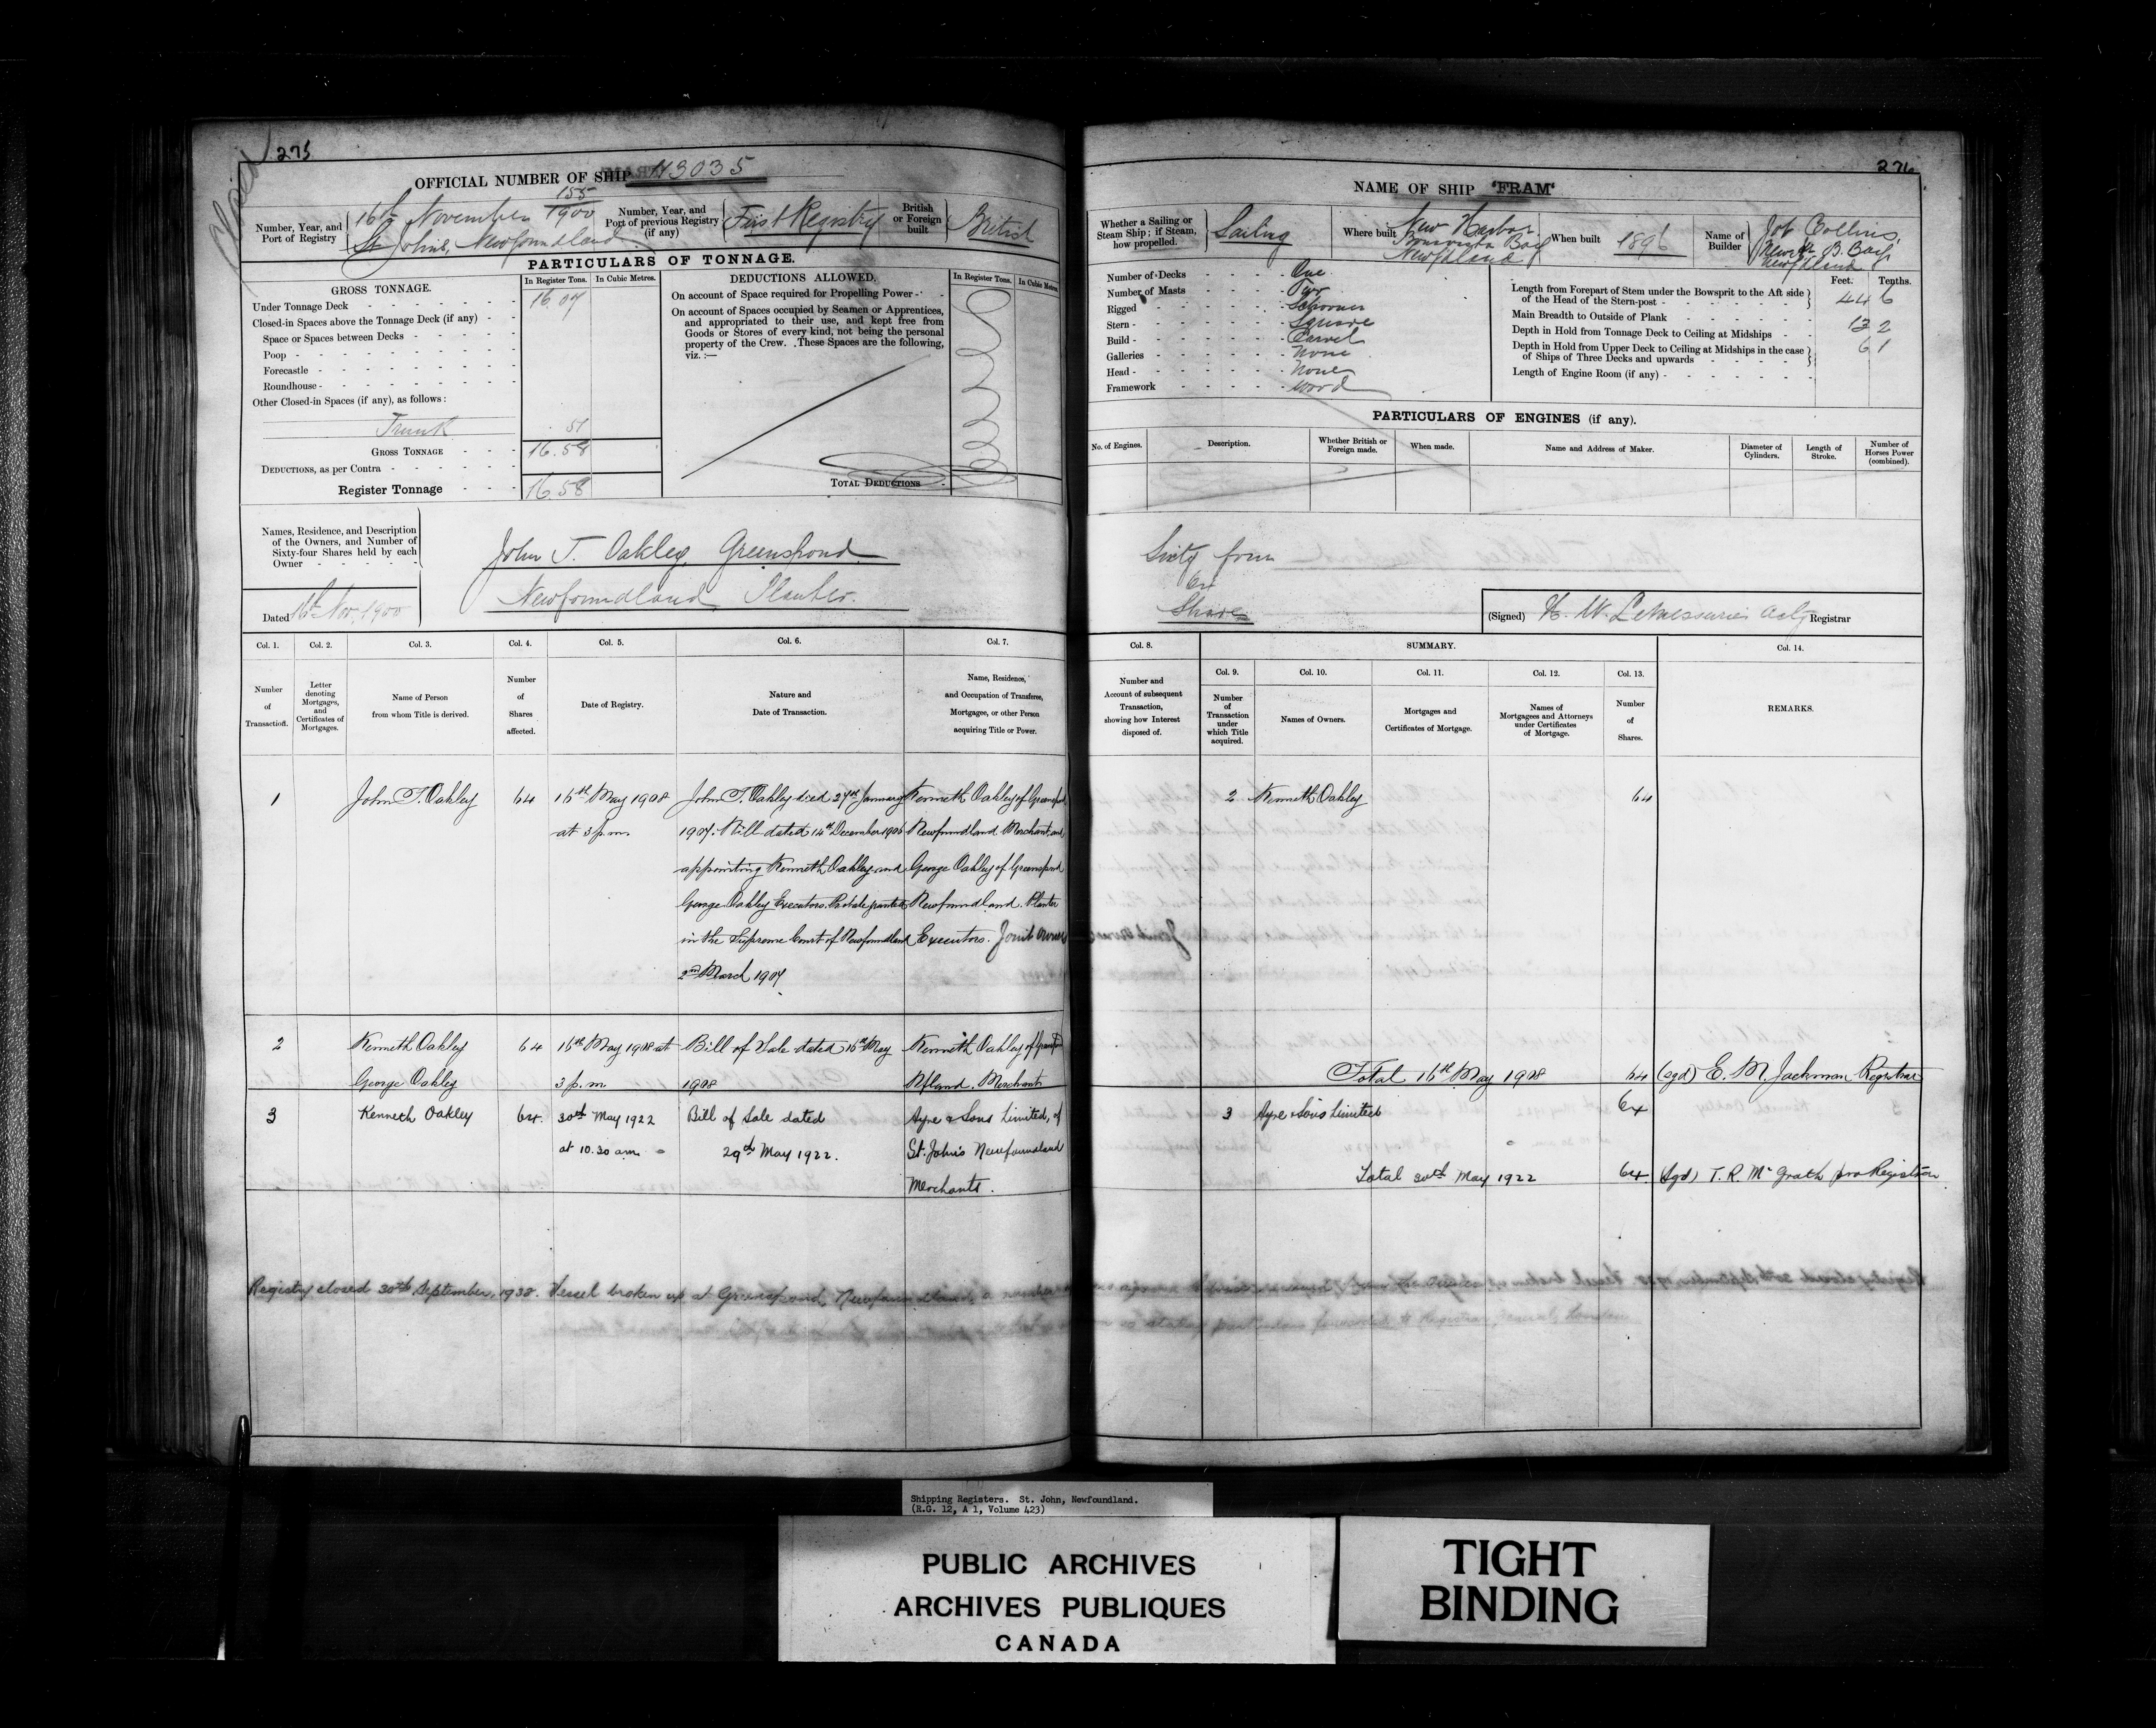 Closed
275
OFFICIAL NUMBER OF SHIP 113035
Number, Year, and Port of Registry
16th November 155/1900
St. Johns, Newfoundland
Number, Year, and Port of previous Registry (if any)
First Registry
British or Foreign built
British
PARTICULARS OF TONNAGE.
GROSS TONNAGE.
In Register Tons.
In Cubic Metres.
Under Tonnage Deck 16.07
Closed-in Spaces above the Tonnage Deck (if any)
Space or Spaces between Decks
Poop
Forecastle
Roundhouse
Other Closed-in Spaces (if any), as follows:
Trunk .51
GROSS TONNAGE 16.58
DEDUCTIONS, as per Contra
Register Tonnage 16.58
DEDUCTIONS ALLOWED.
In Register Tons.
In Cubic Metres.
On account of Space required for Propelling Power
On account of Spaces occupied by Seamen or Apprentices,
and appropriated to their use, and kept free from
Goods or Stores of every kind, not being the personal
property of the Crew. These Spaces are the following,
viz.:—
TOTAL DEDUCTIONS
Names, Residence, and Description
of the Owners, and Number of
Sixty-four Shares held by each
Owner
Dated 16th Nov. 1900
John T. Oakley, Greenspond
Newfoundland Planter.
Col. 1.
Number of Transaction.
Col. 2.
Letter denoting Mortgages, and Certificates of Mortgages.
Col. 3.
Name of Person from whom Title is derived.
Col. 4.
Number of Shares affected.
Col. 5.
Date of Registry.
Col. 6.
Nature and Date of Transaction.
Col. 7.
Name, Residence, and Occupation of Transferee, Mortgagee, or other Person acquiring Title or Power.
1 John T. Oakley 64 16th May 1908 John T. Oakley died 27th January Kenneth Oakley of Greenspond
at 3 p.m. 1907. Will dated 14th December 1906 Newfoundland Merchant and
appointing Kenneth Oakley and George Oakley of Greenspond
George Oakley Executors. Probate granted Newfoundland. Planter
in the Supreme Court of Newfoundland Executors. Joint owners
2nd March 1907
2 Kenneth Oakley 64 16th May 1908 at Bill of Sale dated 16th May Kenneth Oakley of Greenspond
George Oakley 3 p.m. 1908 Nfland. Merchant
3 Kenneth Oakley 64. 30th May 1922 Bill of Sale dated Ayre & Sons Limited, of
at 10.30 a.m. 29th May 1922. St. John's Newfoundland
Merchants.
Registry closed 30th September, 1938. Vessel broken up at Greenspond, Newfoundland,
276
NAME OF SHIP "FRAM"
Whether a Sailing or Steam Ship; if Steam, how propelled.
Sailing
Where built
New Harbor
Bonavista Bay
Newfdland
When built 1896
Name of Builder
Job Collins,
B. Bay,
Newfdland
Number of Decks One
Number of Masts Two
Rigged Schooner
Stern Square
Build Carvel
Galleries None
Head None
Framework Wood
Feet. Tenths.
Length from Forepart of Stem under the Bowsprit to the Aft side
of the Head of the Stern-post 44 6
Main Breadth to Outside of Plank 13 2
Depth in Hold from Tonnage Deck to Ceiling at Midships 6 1
Depth in Hold from Upper Deck to Ceiling at Midships in the case
of Ships of Three Decks and upwards
Length of Engine Room (if any)
PARTICULARS OF ENGINES (if any).
No. of Engines.
Description.
Whether British or Foreign made.
When made.
Name and Address of Maker.
Diameter of Cylinders.
Length of Stroke.
Number of Horses Power (combined).
Sixty four
64
Shares
(Signed) H. W. LeMessurier Actg Registrar
Col. 8.
Number and Account of subsequent Transaction, showing how Interest disposed of.
SUMMARY.
Col. 9.
Number of Transaction under which Title acquired.
Col. 10.
Names of Owners.
Col. 11.
Mortgages and Certificates of Mortgage.
Col. 12.
Names of Mortgagees and Attorneys under Certificates of Mortgage.
Col. 13.
Number of Shares.
Col. 14.
REMARKS.
2 Kenneth Oakley 64
Total 16th May 1908 64 (sgd) E. M. Jackman Registrar
3 Ayre & Sons Limited 64
Total 30th May 1922 64 (Sgd) T. R. McGrath pro Registrar
Shipping Registers. St. John, Newfoundland.
(R.G. 12, A 1, Volume 423)
PUBLIC ARCHIVES
ARCHIVES PUBLIQUES
CANADA
TIGHT
BINDING